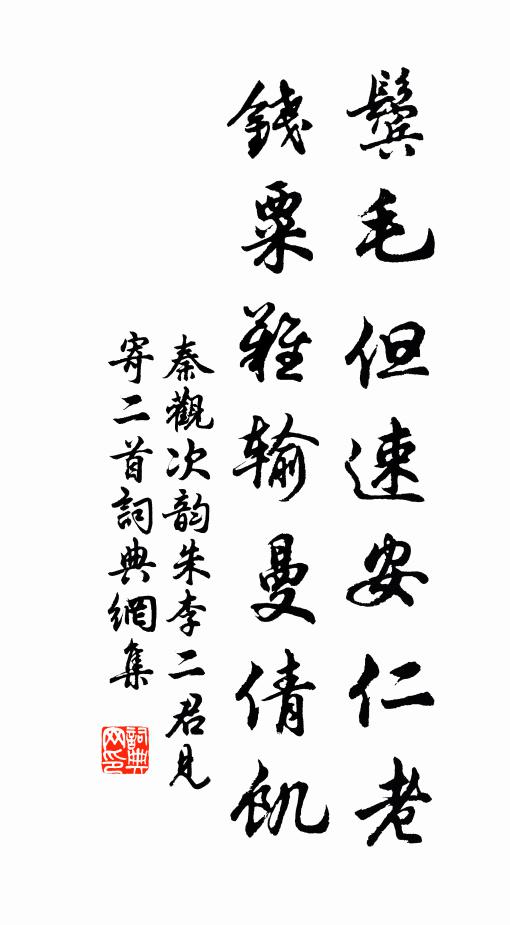 鬓毛但速安仁老
錢粟難输曼倩飢
秦觀次韵朱李二君見
寄二首詞典網集
詞典网印